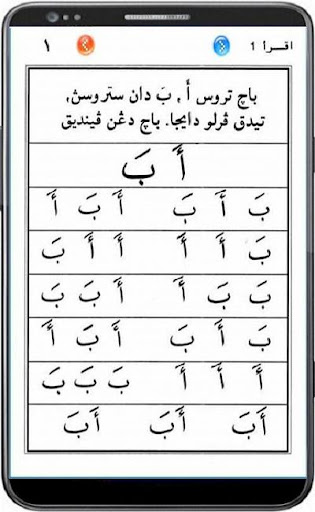 اقرأ 1 ١
باچ تروس أَ , بَ دان ستروسڽ,
تيدق ڤرلو دايجا. باچ دڠن ڤينديق
أَ بَ
بَ أَ بَ أَ بَ أَ
بَ أَ أَ أَ أَ بَ
بَ بَ أَ أَ بَ بَ
بَ أَ بَ أَ بَ أَ
أَ أَ أَ بَ بَ بَ
أَبَ أَبَ أَبَ